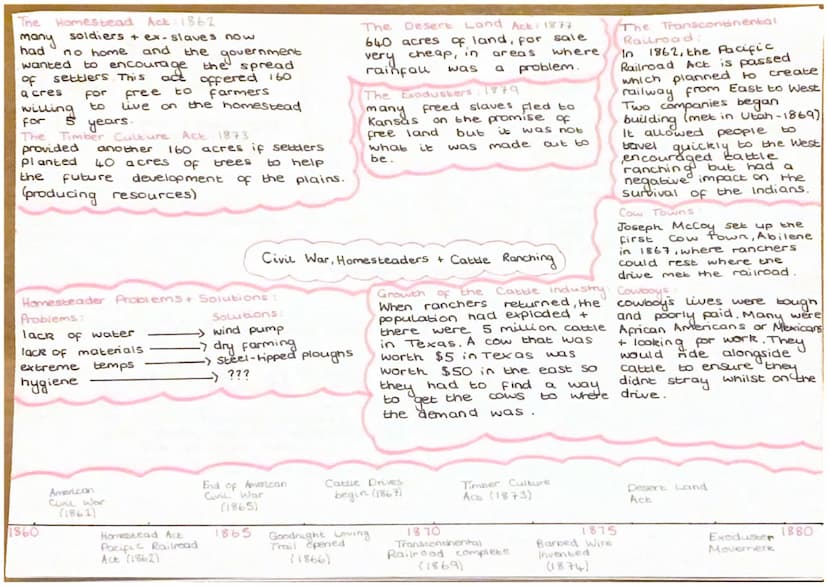 The Homestead Act: 1862
many soldiers + ex-slaves now
had no home and the government
wanted to encourage the spread
of settlers This act offered 160
acres for free to farmers
willing to live on the homestead
for 5 years.
The Timber Culture Act 1873
provided another 160 acres if settlers
planted 40 acres of trees to help
the future development of the plains.
(producing resources)
The Desert Land Act: 1877
640 acres of land, for sale
very cheap, in areas where
rainfall was a problem.
The Exodusters: 1879
many freed slaves fled to
Kansas on the promise of
free land but it was not
what it was made out to
be.
The Transcontinental
Railroad:
In 1862, the Pacific
Railroad Act is passed
which planned to create
railway from East to West
Two companies began
building (met in Utah-1869)
It allowed people to
travel quickly to the West,
encouraged cattle
ranching but had a
negative impact on the
survival of the Indians.
Civil War, Homesteaders + Cattle Ranching
Cow Towns:
Joseph McCoy set up the
first Cow Town, Abilene
in 1867, where ranchers
could rest where the
drive met the railroad.
Homesteader Problems + Solutions:
Problems: Solutions:
lack of water → wind pump
lack of materials → dry farming
extreme temps → steel-tipped ploughs
hygiene → ???
Growth of the Cattle Industry:
When ranchers returned, the
population had exploded +
there were 5 million cattle
in Texas. A cow that was
worth $5 in Texas was
worth $50 in the east so
they had to find a way
to get the cows to where
the demand was.
Cowboys:
cowboy's lives were tough
and poorly paid. Many were
African Americans or Mexicans
+ looking for work. They
would ride alongside
cattle to ensure they
didnt stray whilst on the
drive.
American
Civil War
(1861)
End of American
Civil War
(1865)
Cattle Drives
begin (1867)
Timber Culture
Act (1873)
Desert Land
Act
1860 1865 1870 1875 1880
Homestead Act
Pacific Railroad
Act (1862)
Goodnight Loving
Trail opened
(1866)
Transcontinental
Railroad complete
(1869)
Barbed Wire
Invented
(1874)
Exoduster
Movement